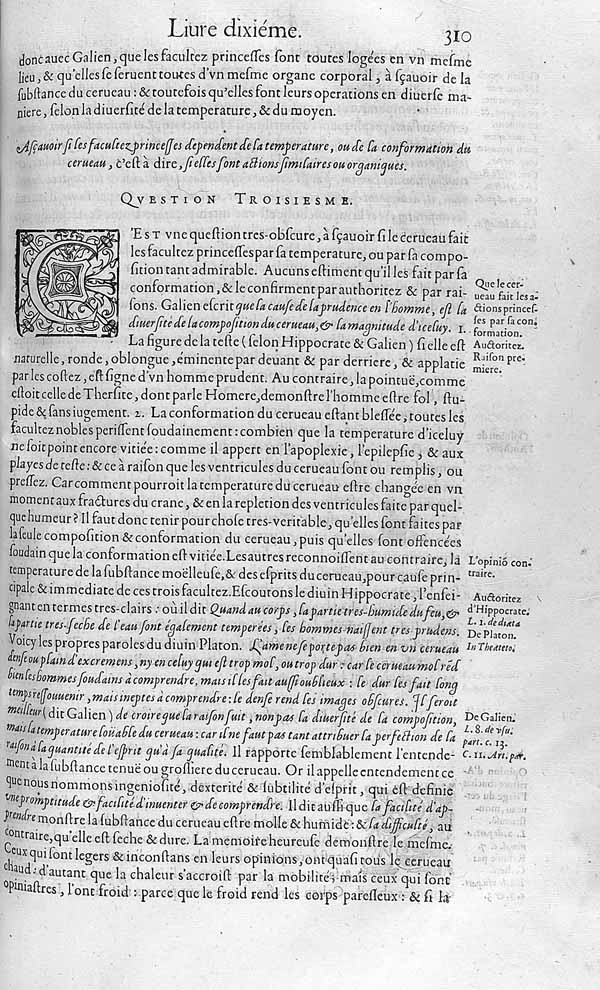 Liure dixiéme.
310
donc auec Galien, que les facultez princesses sont toutes logées en vn mesme
lieu, & qu'elles se seruent toutes d'vn mesme organe corporal, à sçauoir de la
substance du cerueau : & toutefois qu'elles font leurs operations en diuerse ma-
niere, selon la diuersité de la temperature, & du moyen.
Asçauoir si les facultez princesses dependent de la temperature, ou de la conformation du
cerueau, c'est à dire, si elles sont actions similaires ou organiques.
QVESTION TROISIESME.
C'EST vne question tres-obscure, à sçauoir si le cerueau fait
les facultez princesses par sa temperature, ou par sa compo-
sition tant admirable. Aucuns estiment qu'il les fait par sa
conformation, & le confirment par authoritez & par rai-
sons. Galien escrit que la cause de la prudence en l'homme, est la
diuersité de la composition du cerueau, & la magnitude d'iceluy. 1.
La figure de la teste (selon Hippocrate & Galien) si elle est
naturelle, ronde, oblongue, éminente par deuant & par derriere, & applatie
par les costez, est signe d'vn homme prudent. Au contraire, la pointuë, comme
estoit celle de Thersite, dont parle Homere, demonstre l'homme estre fol, stu-
pide & sans iugement. 2. La conformation du cerueau estant blessée, toutes les
facultez nobles perissent soudainement : combien que la temperature d'iceluy
ne soit point encore vitiée : comme il appert en l'apoplexie, l'epilepsie, & aux
playes de teste : & ce à raison que les ventricules du cerueau sont ou remplis, ou
pressez. Car comment pourroit la temperature du cerueau estre changée en vn
moment aux fractures du crane, & en la repletion des ventricules faite par quel-
que humeur ? Il faut donc tenir pour chose tres-veritable, qu'elles sont faites par
la seule composition & conformation du cerueau, puis qu'elles sont offencées
soudain que la conformation est vitiée. Les autres reconnoissent au contraire, la
temperature de la substance moëlleuse, & des esprits du cerueau, pour cause prin-
cipale & immediate de ces trois facultez. Escoutons le diuin Hippocrate, l'ensei-
gnant en termes tres-clairs : où il dit Quand au corps, la partie tres-humide du feu, &
la partie tres-seche de l'eau sont également temperées, les hommes naissent tres prudens.
Voicy les propres paroles du diuin Platon. L'ame ne se porte pas bien en vn cerueau
dense ou plain d'excremens, ny en celuy qui est trop mol, ou trop dur : car le cerueau mol rēd
bien les hommes soudains à comprendre, mais il les fait aussi oublieux : le dur les fait long
temps ressouuenir, mais ineptes à comprendre : le dense rend les images obscures. Il seroit
meilleur (dit Galien) de croire que la raison suit, non pas la diuersité de la composition,
mais la temperature loüable du cerueau : car il ne faut pas tant attribuer la perfection de la
raison à la quantité de l'esprit qu'à sa qualité. Il rapporte semblablement l'entende-
ment à la substance tenuë ou grossiere du cerueau. Or il appelle entendement ce
que nous nommons ingeniosité, dexterité & subtilité d'esprit, qui est definie
vne promptitude & facilité d'inuenter & de comprendre. Il dit aussi que la facilité d'ap-
prendre monstre la substance du cerueau estre molle & humide : & la difficulté, au
contraire, qu'elle est seche & dure. La memoire heureuse demonstre le mesme.
Ceux qui sont legers & inconstans en leurs opinions, ont quasi tous le cerueau
chaud : d'autant que la chaleur s'accroist par la mobilité ; mais ceux qui sont
opiniastres, l'ont froid : parce que le froid rend les corps paresseux : & si la
Que le cer-
ueau fait les a-
ctions princes-
ses par sa con-
formation.
Auctoritez.
Raison pre-
miere.
L'opiniō con-
traire.
Auctoritez
d'Hippocrate.
L. 1. de diæta
De Platon.
In Theæteto.
De Galien.
L. 8. de vsu.
part. c. 13.
C. 11. Art. par.